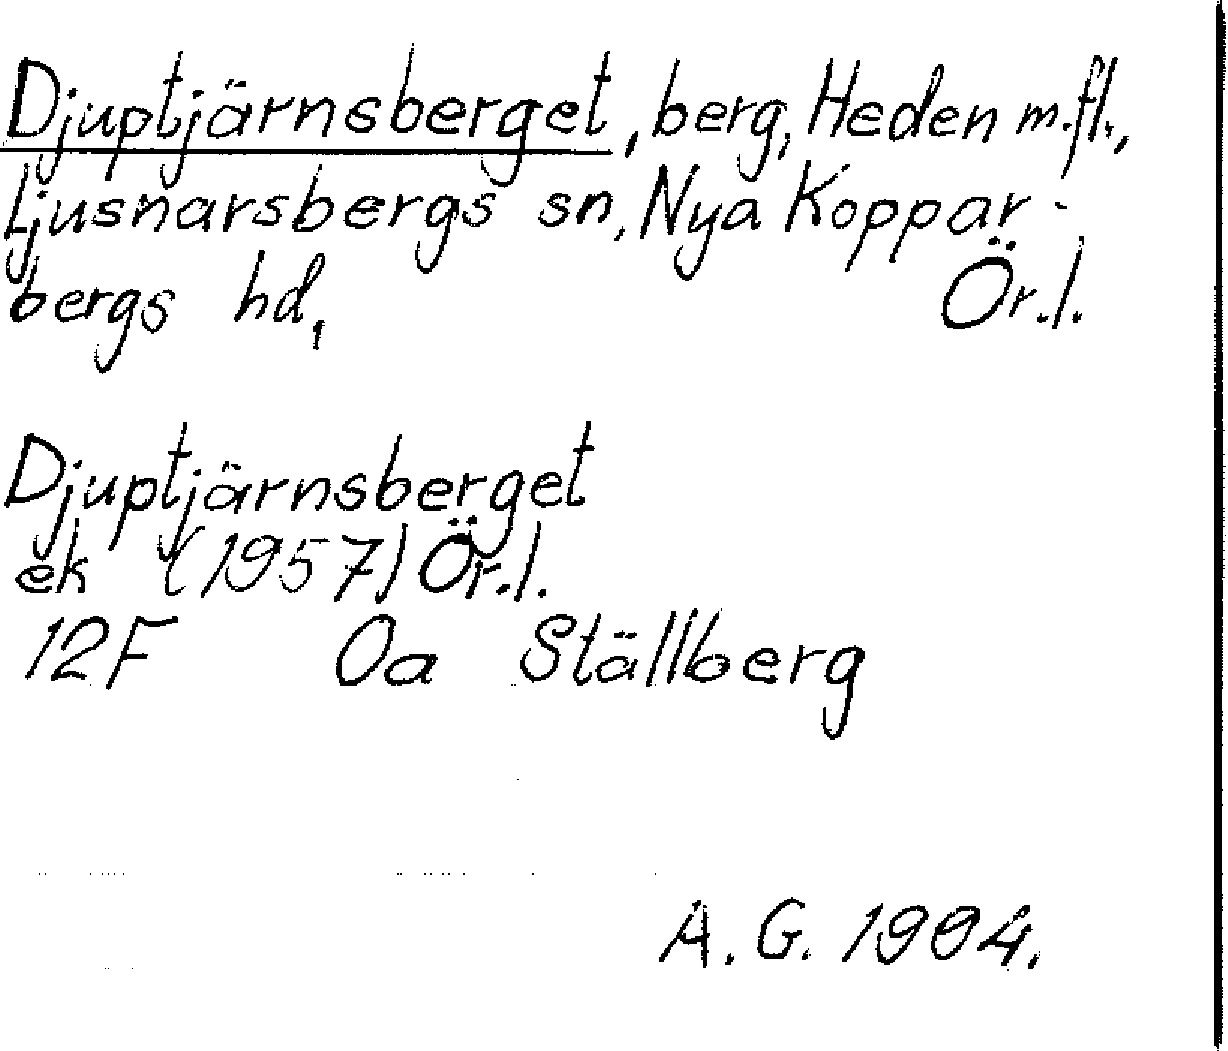 Djuptjärnsberget, berg, Heden m.fl.,
Ljusnarsbergs sn, Nya Koppar-
bergs hd, Ör.l.
Djuptjärnsberget
ek (1957) Ör.l.
12F 0a Ställberg
A. G. 1994.